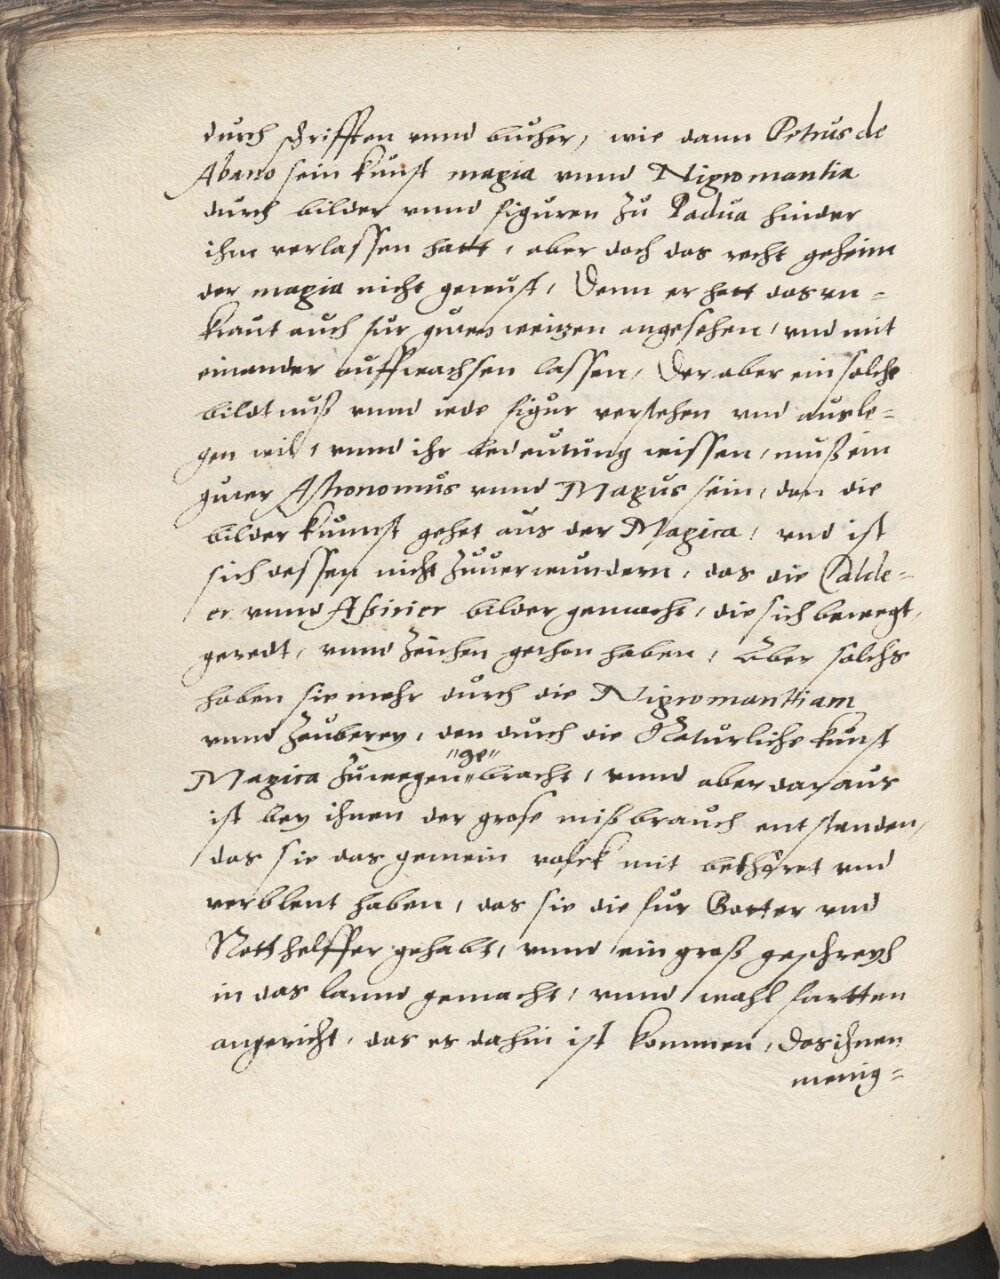 durch schrifften vnnd bucher, wie dann Petrus de
Abano sein kunst magia vnnd Nigromantia
durch bilder vnnd figuren zu Padua hinder
ihm verlassen hatt, aber doch das recht geheim
der magia nicht gewust, Denn er hatt das vn=
kraut auch für guten weitzen angesehen, vnd mit
einander auffwachsen lassen, Der aber ein solche
bildtnuß vnnd iede figur verstehen vnd ausle=
gen will, vnnd ihr bedeutung wissen, muß ein
guter Astronomus vnnd Magus sein, dan die
bilder kunnst gehet aus der Magica, vnd ist
sich dessen nicht zuuerwundern, das die Calde=
er vnnd Aßirier bilder gemacht, die sich bewegt,
geredt, vnnd zeichen gethon haben, Aber solchs
haben sie mehr durch die Nigromantiam
vnnd Zauberey, den durch die Naturliche kunst
Magica zuwegen "ge" bracht, vnnd aber daraus
ist bey ihnen der grose mißbrauch entstanden,
das sie das gemein volck mit bethöret vnd
verblent haben, das sie die für Gotter vnd
Notthelffer gehabt, vnnd ein groß geschreyh
in das lannd gemacht, vnnd wahlfartten
angericht, das es dahin ist kommen, das ihnen
menig=